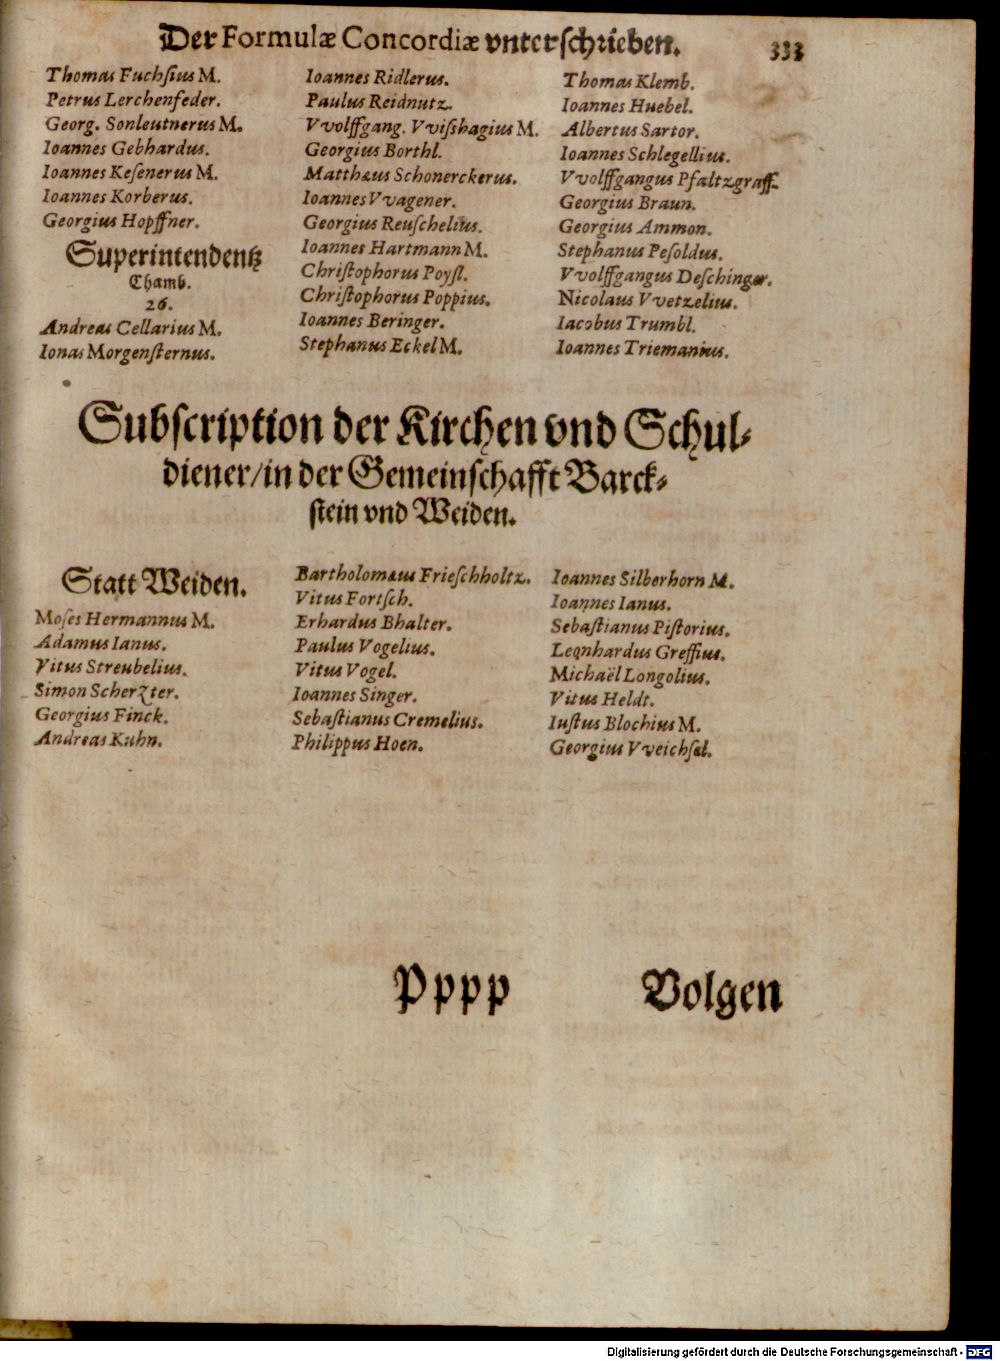 Der Formulæ Concordiæ vnterschrieben. 333
Thomas Fuchsius M.
Petrus Lerchenfeder.
Georg. Sonleutnerus M.
Ioannes Gebhardus.
Ioannes Kesenerus M.
Ioannes Korberus.
Georgius Hopffner.
Superintendentz
Chamb.
26.
Andreas Cellarius M.
Ionas Morgensternus.
Ioannes Ridlerus.
Paulus Reidnutz.
Vvolffgang. Vvißhagius M.
Georgius Borthl.
Matthæus Schonerckerus.
Ioannes Vvagener.
Georgius Reuschelius.
Ioannes Hartmann M.
Christophorus Poysl.
Christophorus Poppius.
Ioannes Beringer.
Stephanus Eckel M.
Thomas Klemb.
Ioannes Huebel.
Albertus Sartor.
Ioannes Schlegellius.
Vvolffgangus Pfaltzgraff.
Georgius Braun.
Georgius Ammon.
Stephanus Pesoldus.
Vvolffgangus Deschinger.
Nicolaus Vvetzelius.
Iacobus Trumbl.
Ioannes Triemanius.
Subscription der Kirchen vnd Schul-
diener/in der Gemeinschafft Barck-
stein vnd Weiden.
Statt Weiden.
Moses Hermannus M.
Adamus Ianus.
Vitus Streubelius.
Simon Scherzter.
Georgius Finck.
Andreas Kuhn.
Bartholomæus Frieschholtz.
Vitus Fortsch.
Erhardus Bhalter.
Paulus Vogelius.
Vitus Vogel.
Ioannes Singer.
Sebastianus Cremelius.
Philippus Hoen.
Ioannes Silberhorn M.
Ioannes Ianus.
Sebastianus Pistorius.
Leonhardus Greffius.
Michaël Longolius.
Vitus Heldt.
Iustus Blochius M.
Georgius Vveichsel.
Pppp Volgen
Digitalisierung gefördert durch die Deutsche Forschungsgemeinschaft - DFG